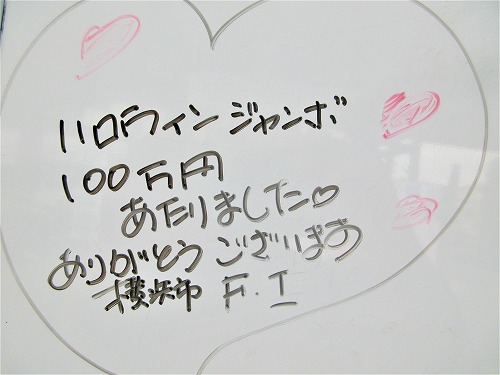 ハロウィンジャンボ
100万円
あたりました♡
ありがとうございます
横浜市 F.I